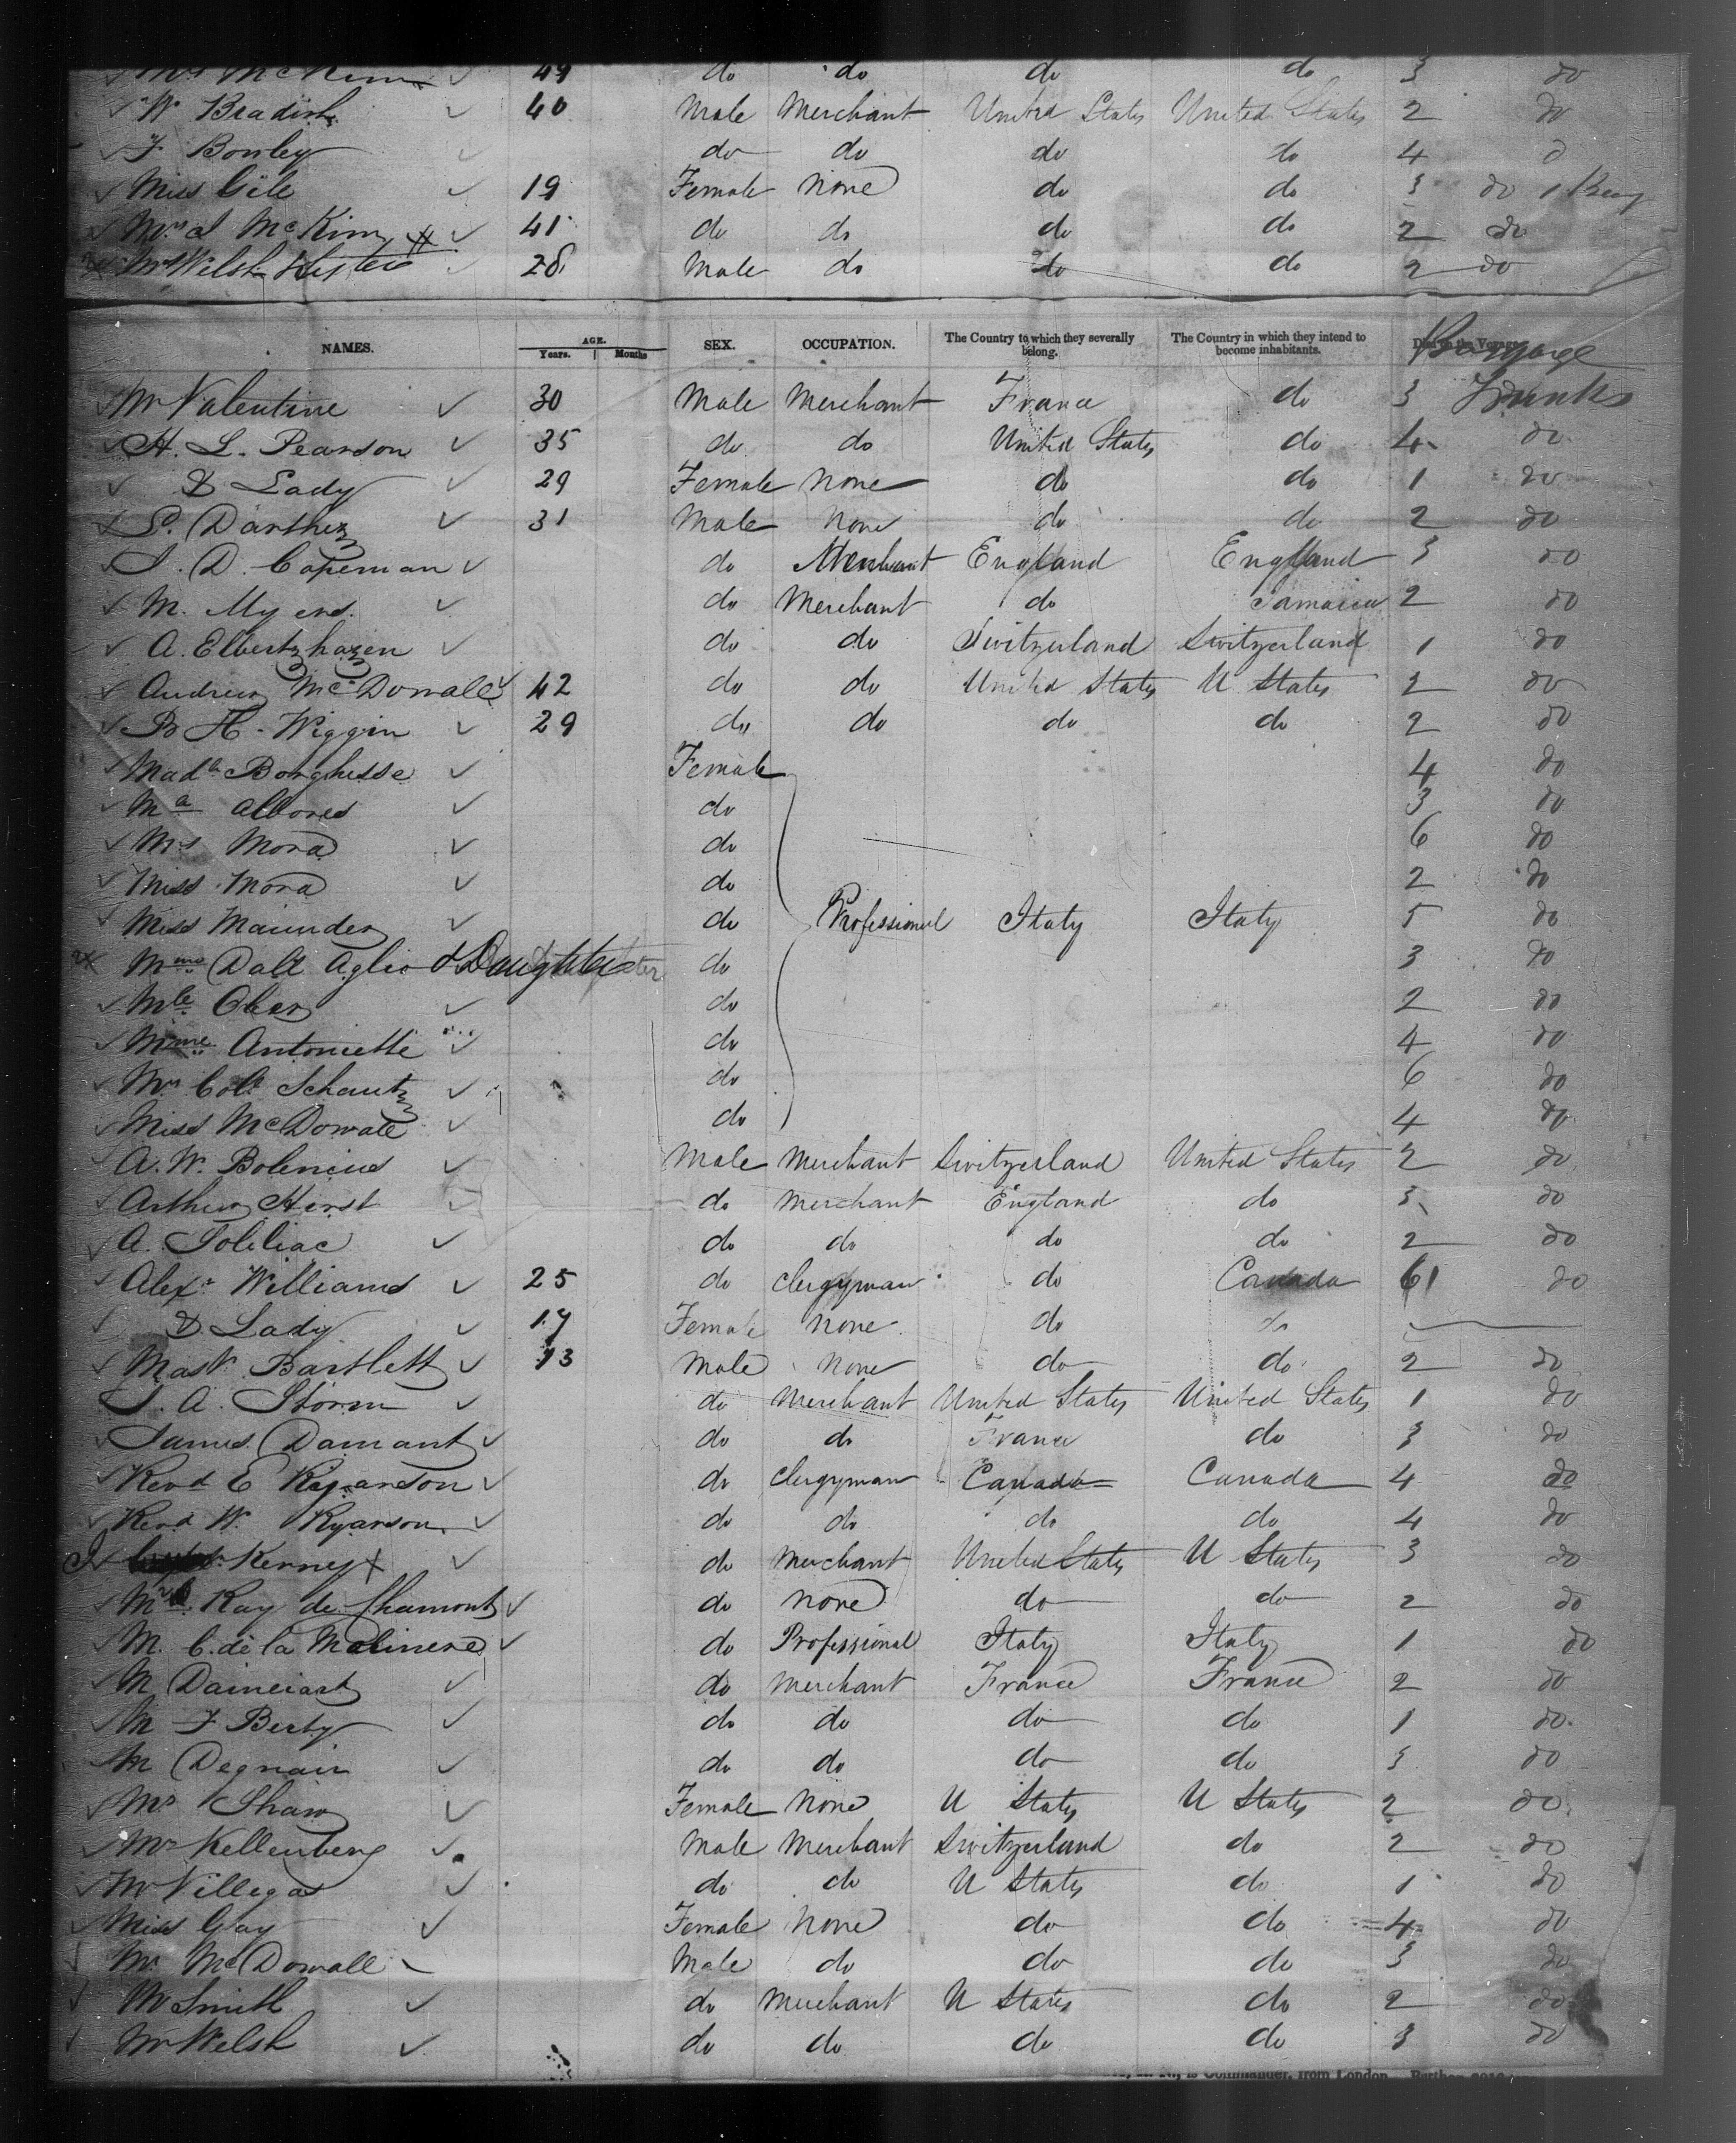 Mrs McKim 49 do do do do 3 do
W Bradish 40 Male Merchant United States United States 2 do
F Bowley do do do do 4 d
Miss Gile 19 Female None do do 3 do 1 Keg
Mrs J McKim 41 do do do do 2 do
Mr Welsh 28 Male do do do 2 do
NAMES. AGE. Years. Months SEX. OCCUPATION. The Country to which they severally belong. The Country in which they intend to become inhabitants. Baggage
Mr Valentine 30 Male Merchant France do 3 Trunks
H. L. Pearson 35 do do United States do 4 do
& Lady 29 Female None do do 1 do
P. Darthez 31 Male None do do 2 do
J. D. Copeman do Merchant England England 3 do
M. Myers. do Merchant do Jamaica 2 do
A. Elbertzhazen do do Switzerland Switzerland 1 do
Andrew McDowall 42 do do United States U States 2 do
B H. Wiggin 29 do do do do 2 do
Made Borghesse Female 4 do
Ma Albores do 3 do
Mrs Mora do 6 do
Miss Mora do 2 do
Miss Maunder do Professional Italy Italy 5 do
Mme Dall Aglio & Daughter do 3 do
Mle Ober do 2 do
Mme Antoniette do 4 do
Mrs Col Schautz do 6 do
Miss McDowall do 4 do
A. W. Bolenius Male Merchant Switzerland United States 2 do
Arthur Hirst do Merchant England do 3 do
A. Soleliac do do do do 2 do
Alexr Williams 25 do Clergyman do Canada 61 do
& Lady 17 Female None do do
Mastr Bartlett 13 Male None do do 2 do
J. A. Storm do Merchant United States United States 1 do
James Damant do do France do 3 do
Revd E Ryarson do Clergyman Canada Canada 4 do
Revd W. Ryarson do do do do 4 do
J Kerney do Merchant United States U States 3 do
Ray de Chamont do None do do 2 do
M. C. de la Molinere do Professional Italy Italy 1 do
M Daineiart do Merchant France France 2 do
M F Berty do do do do 1 do.
M Degnain do do do do 3 do
Mrs Shaw Female None U States U States 2 do
Mr Kellenberg Male Merchant Switzerland do 2 do
Mr Villegas do do U States do 1 do
Miss Gay Female None do do 4 do
Mr McDowall Male do do do 3 do
Mr Smith do Merchant U States do 2 do
Mr Welsh do do do do 3 do
is Commander, from London